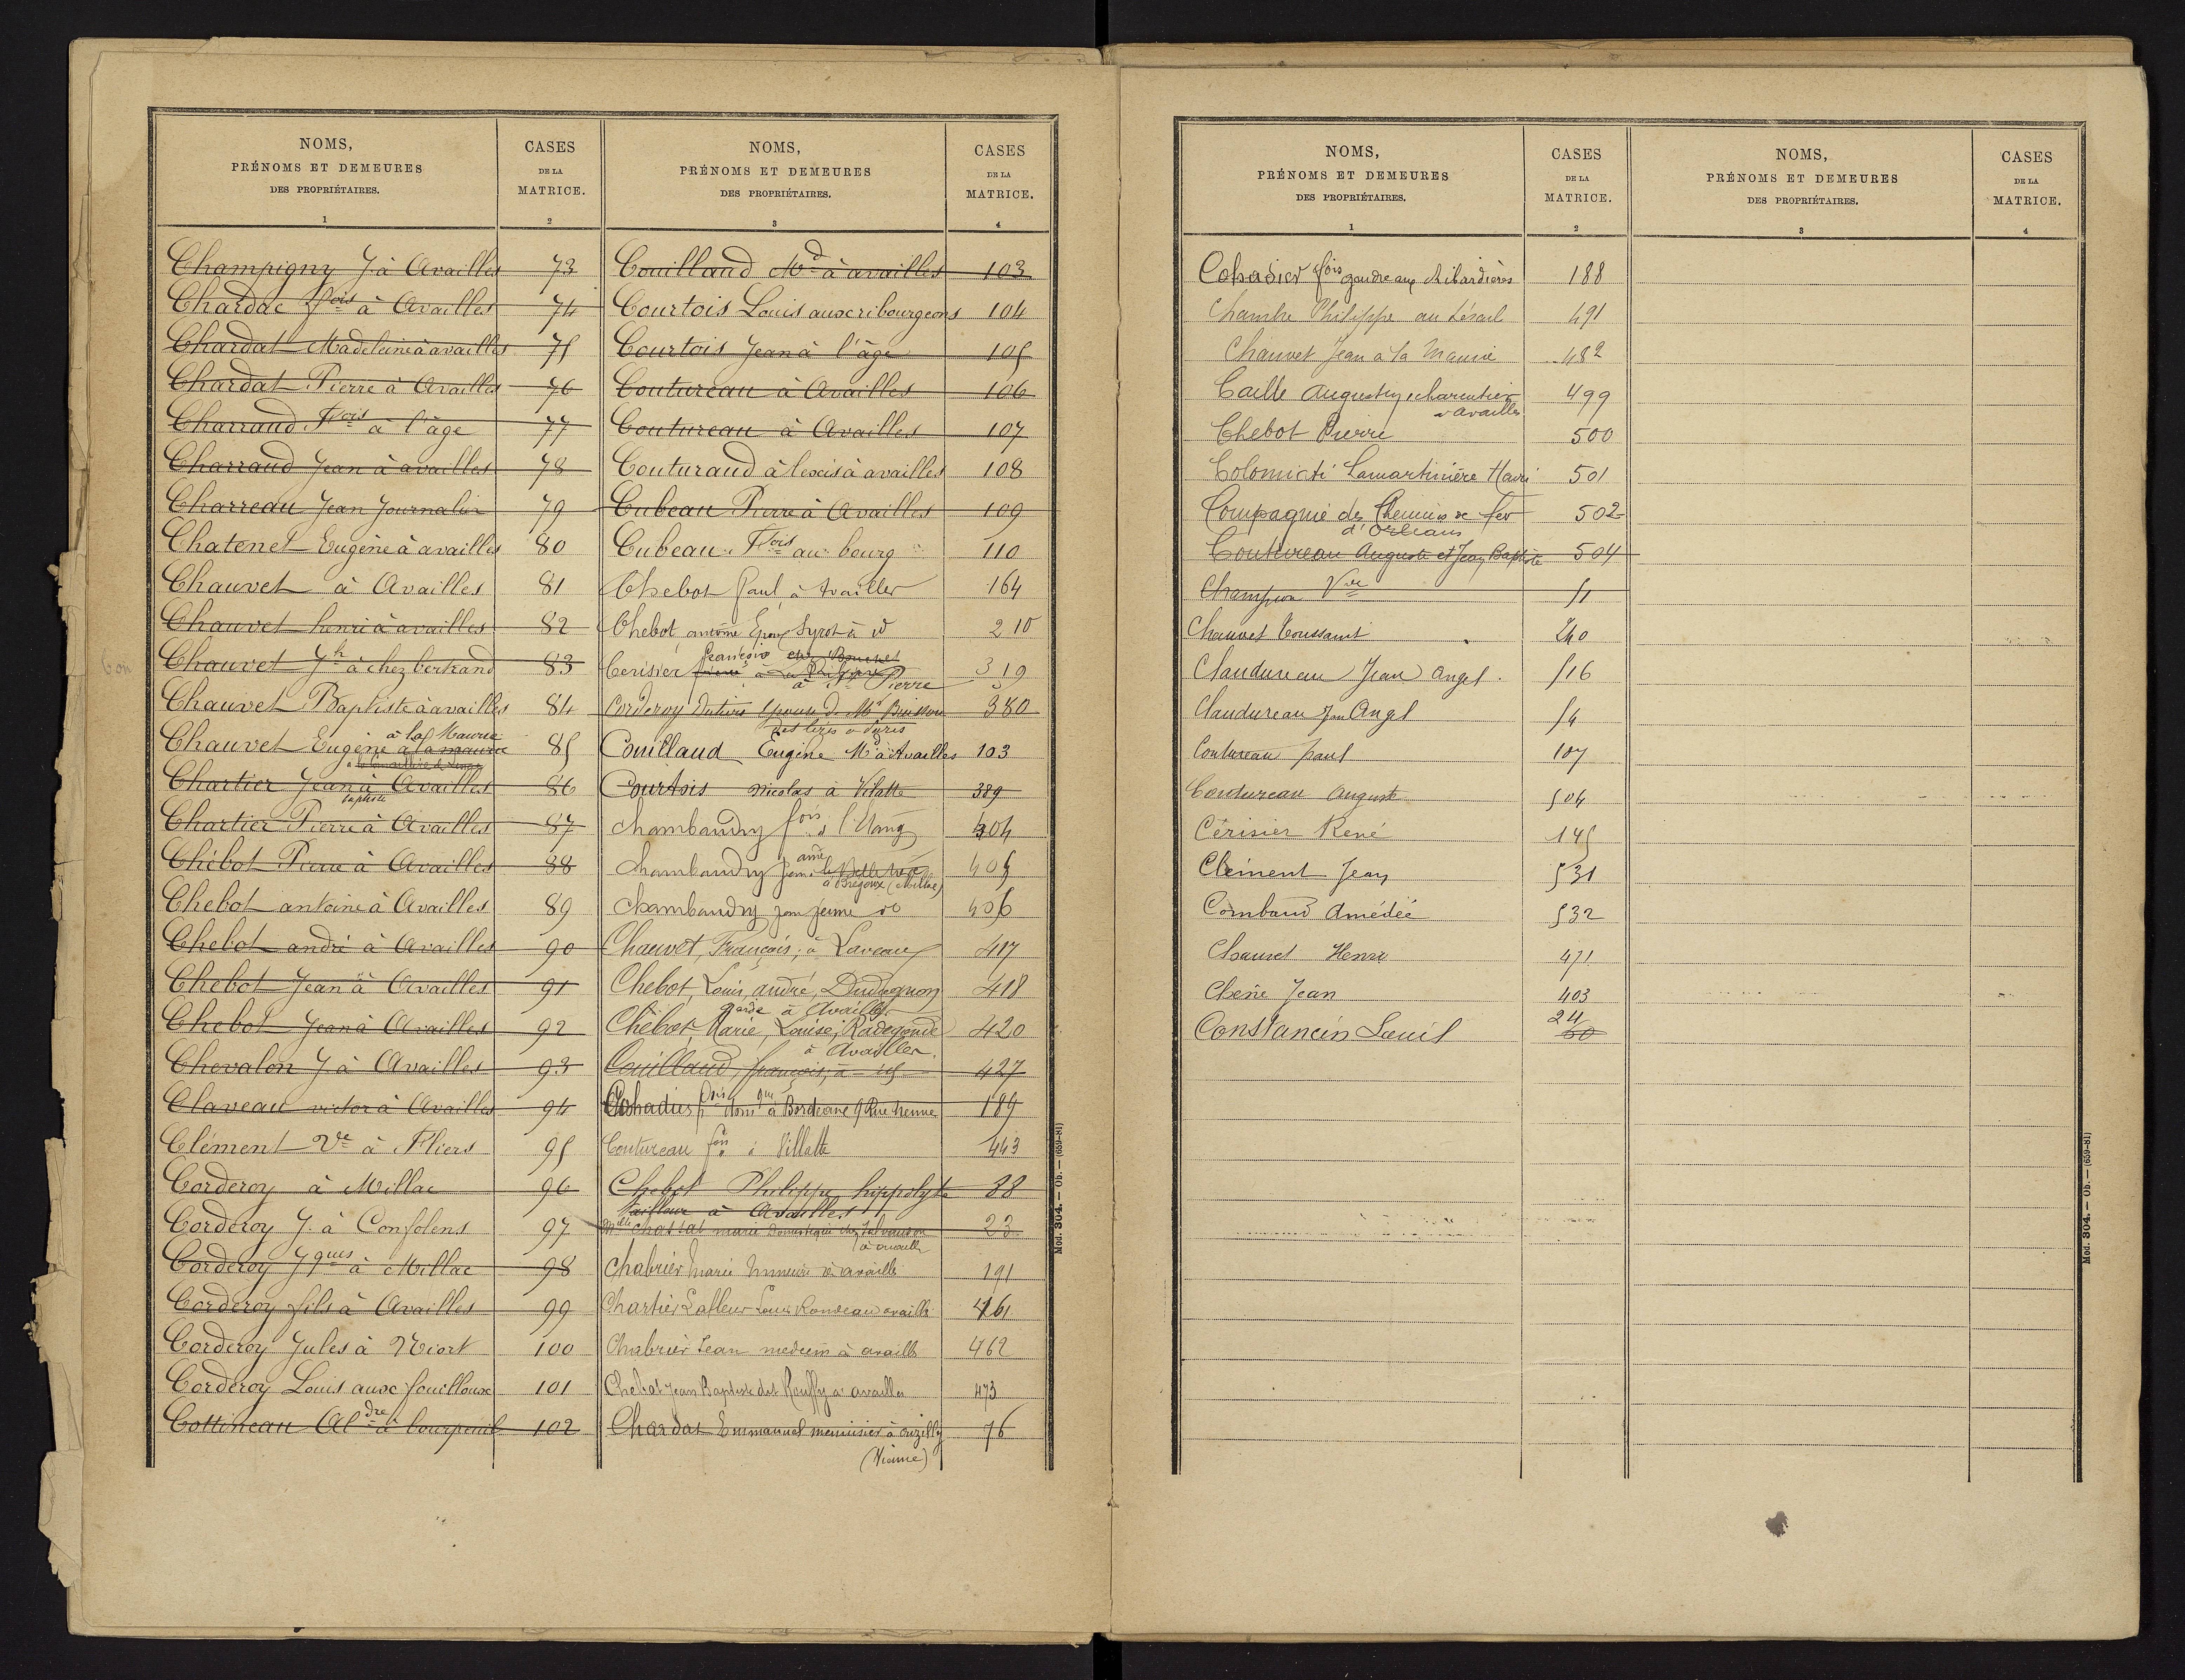 NOMS,
PRÉNOMS ET DEMEURES
DES PROPRIÉTAIRES.
1
CASES
DE LA
MATRICE.
2
Champigny J. à Availles 73
Chardac fois à Availles 74
Chardat Madeleine à availles 75
Chardat Pierre à Availles 76
Charraud Fois à l'âge 77
Charraud Jean à availles 78
Charreau Jean Journalier 79
Chatenet Eugène à availles 80
Chauvet à Availles 81
Chauvet henri à availles 82
Chauvet Jh à chez bertrand 83
Chauvet Baptiste à availles 84
à la Maurie
Chauvet Eugène à la maurie 85
Chartier Jean à Availles 86
baptiste
Chartier Pierre à Availles 87
Chébot Pierre à Availles 88
Chebot antoine à Availles 89
Chebot andré à Availles 90
Chebot Jean à Availles 91
Chebot Jean à Availles 92
Chevalon J. à Availles 93
Claveau victor à Availles 94
Clément Ve à Fliers 95
Corderoy à Millac 96
Corderoy J. à Confolens 97
Corderoy Jques à Millac 98
Corderoy fils à Availles 99
Corderoy Jules à Niort 100
Corderoy Louis aux fouilloux 101
Cottineau Aldre à bourpeuil 102
NOMS,
PRÉNOMS ET DEMEURES
DES PROPRIÉTAIRES.
3
CASES
DE LA
MATRICE.
4
Couillaud Md à availles 103
Courtois Louis aux ribourgeons 104
Courtois Jean à l'âge 105
Coutureau à Availles 106
Coutureau à Availles 107
Couturaud alexis à availles 108
Cubeau Pierre à Availles 109
Cubeau Fois au bourg 110
Chebot Paul à Availles 164
Chebot antoine Epoux Syrot à do 210
françois chez Bouchet
Cerisier à 319
à St Pierre
Corderoy épouse de Mr Buisson 380
Couillaud Eugène Md à Availles 103
Courtois nicolas à Vilatte 389
Chambaudry fois à l'Etang 404
ainé
Chambaudry Jean 405
à Bregoux (Millac)
Chambaudry jean jeune do 406
Chauvet, François, à Laveau 417
Chebot, Louis, andré, Dudognon 418
garde à Availles
Chébot, Marie, Louise, Radegonde 420
à Availles.
Couillaud, françois, à 427
Cohadier fois domque à Bordeaux 9 Rue 189
Coutureau fois à Villatte 443
Chebot Philippe hippolyte 88
tailleur à Availles
Melle Chassat marie Domestique chez 23
à availles
Chabrier Marie à availles 191
Chartier Lafleur Louis Rondeau availles 461
Chabrier Jean medecin à availles 462
Chebot Jean Baptiste dit Rouffy à availles 473
Chardat Emmanuel menuisier à ouzilly 76
(Vienne)
Mod. 304. — Ob. — (659-81)
NOMS,
PRÉNOMS ET DEMEURES
DES PROPRIÉTAIRES.
1
CASES
DE LA
MATRICE.
2
Cohadier fois gendre aux Ribardières 188
Chambe Philippe au 491
Chauvet Jean à la Maurie 482
Caille Augustin, charcutier 499
à availles
Chebot Pierre 500
Lamartinière Henri 501
Compagnie des Chemins de fer 502
d'Orléans
Coutureau Auguste et Jean Baptiste 504
Champion Vve 51
Chauvet Toussaint 240
Claudureau Jean Angel. 516
Claudureau Jean Angel 54
Coutureau paul 107
Coutureau Auguste 504
Cérisier René 145
Clément Jean 531
Combaud Amédée 532
Chauvet Henri 471
Chene Jean 403
24
Constancin Louis 60
NOMS,
PRÉNOMS ET DEMEURES
DES PROPRIÉTAIRES.
3
CASES
DE LA
MATRICE.
4
Mod. 304. — Ob. — (659-81)